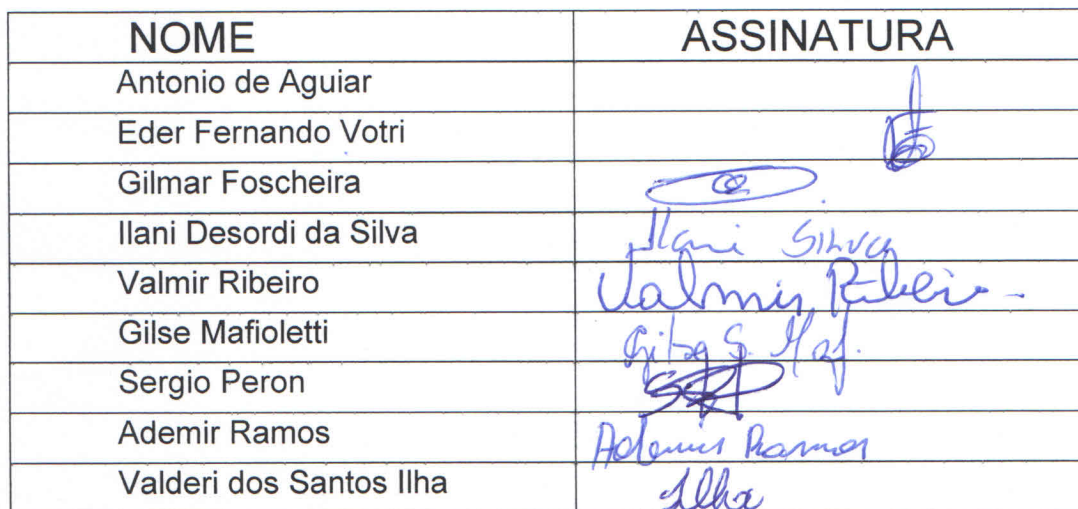 NOME ASSINATURA
Antonio de Aguiar
Eder Fernando Votri
Gilmar Foscheira
Ilani Desordi da Silva Ilani Silva
Valmir Ribeiro Valmir Ribeiro
Gilse Mafioletti
Sergio Peron
Ademir Ramos Ademir Ramos
Valderi dos Santos Ilha Ilha